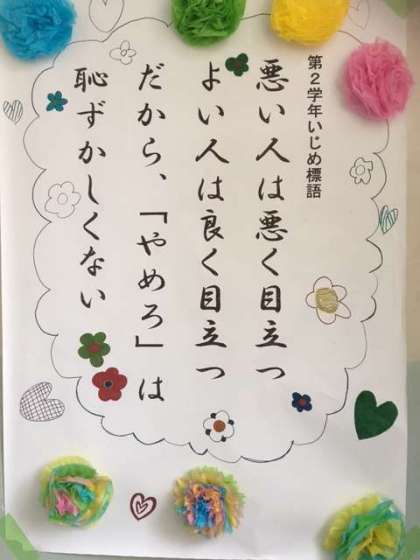 第2学年いじめ標語
悪い人は悪く目立つ
よい人は良く目立つ
だから、「やめろ」は
恥ずかしくない